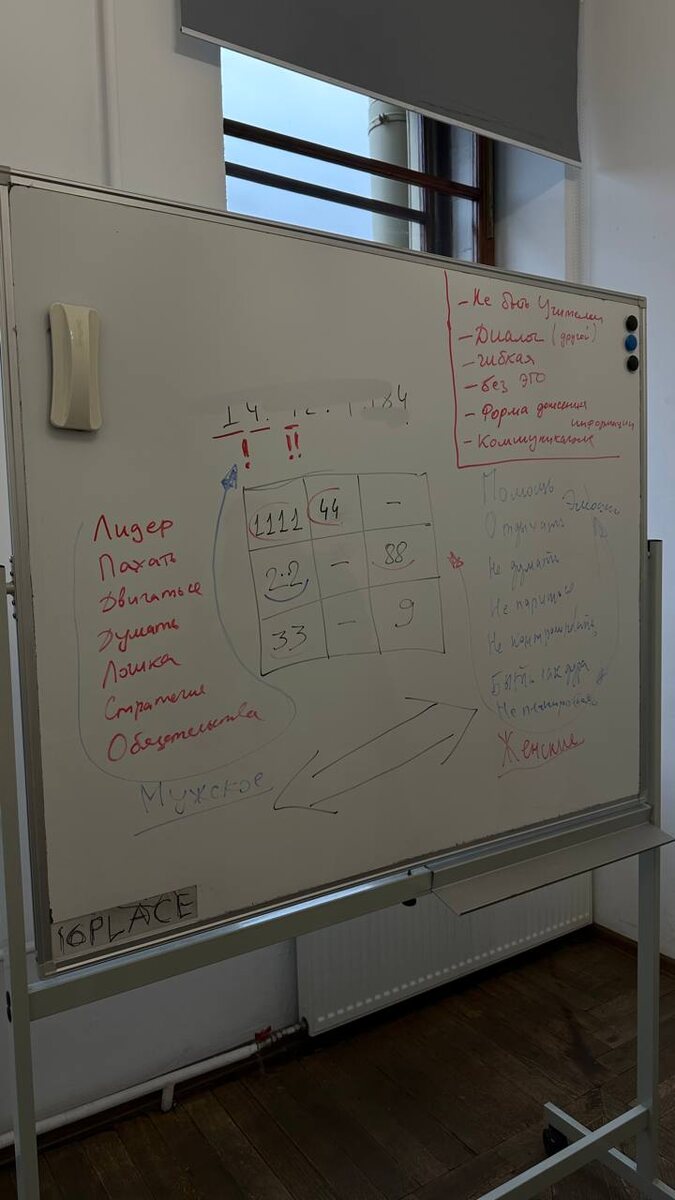 - Не быть Учителем
- Диалог (другой)
- гибкая
- без ЭГО
- Форма донесения
информации
- Коммуникация
14.
! !!
1111 44 -
22 - 88
33 - 9
Лидер
Пахать
Двигаться
Думать
Логика
Стратегия
Обязательства
Мужское
Помощь
Эмоции
Отдыхать
Не думать
Не париться
Не контролировать
Быть как дура
Не планировать
Женские
16PLACE